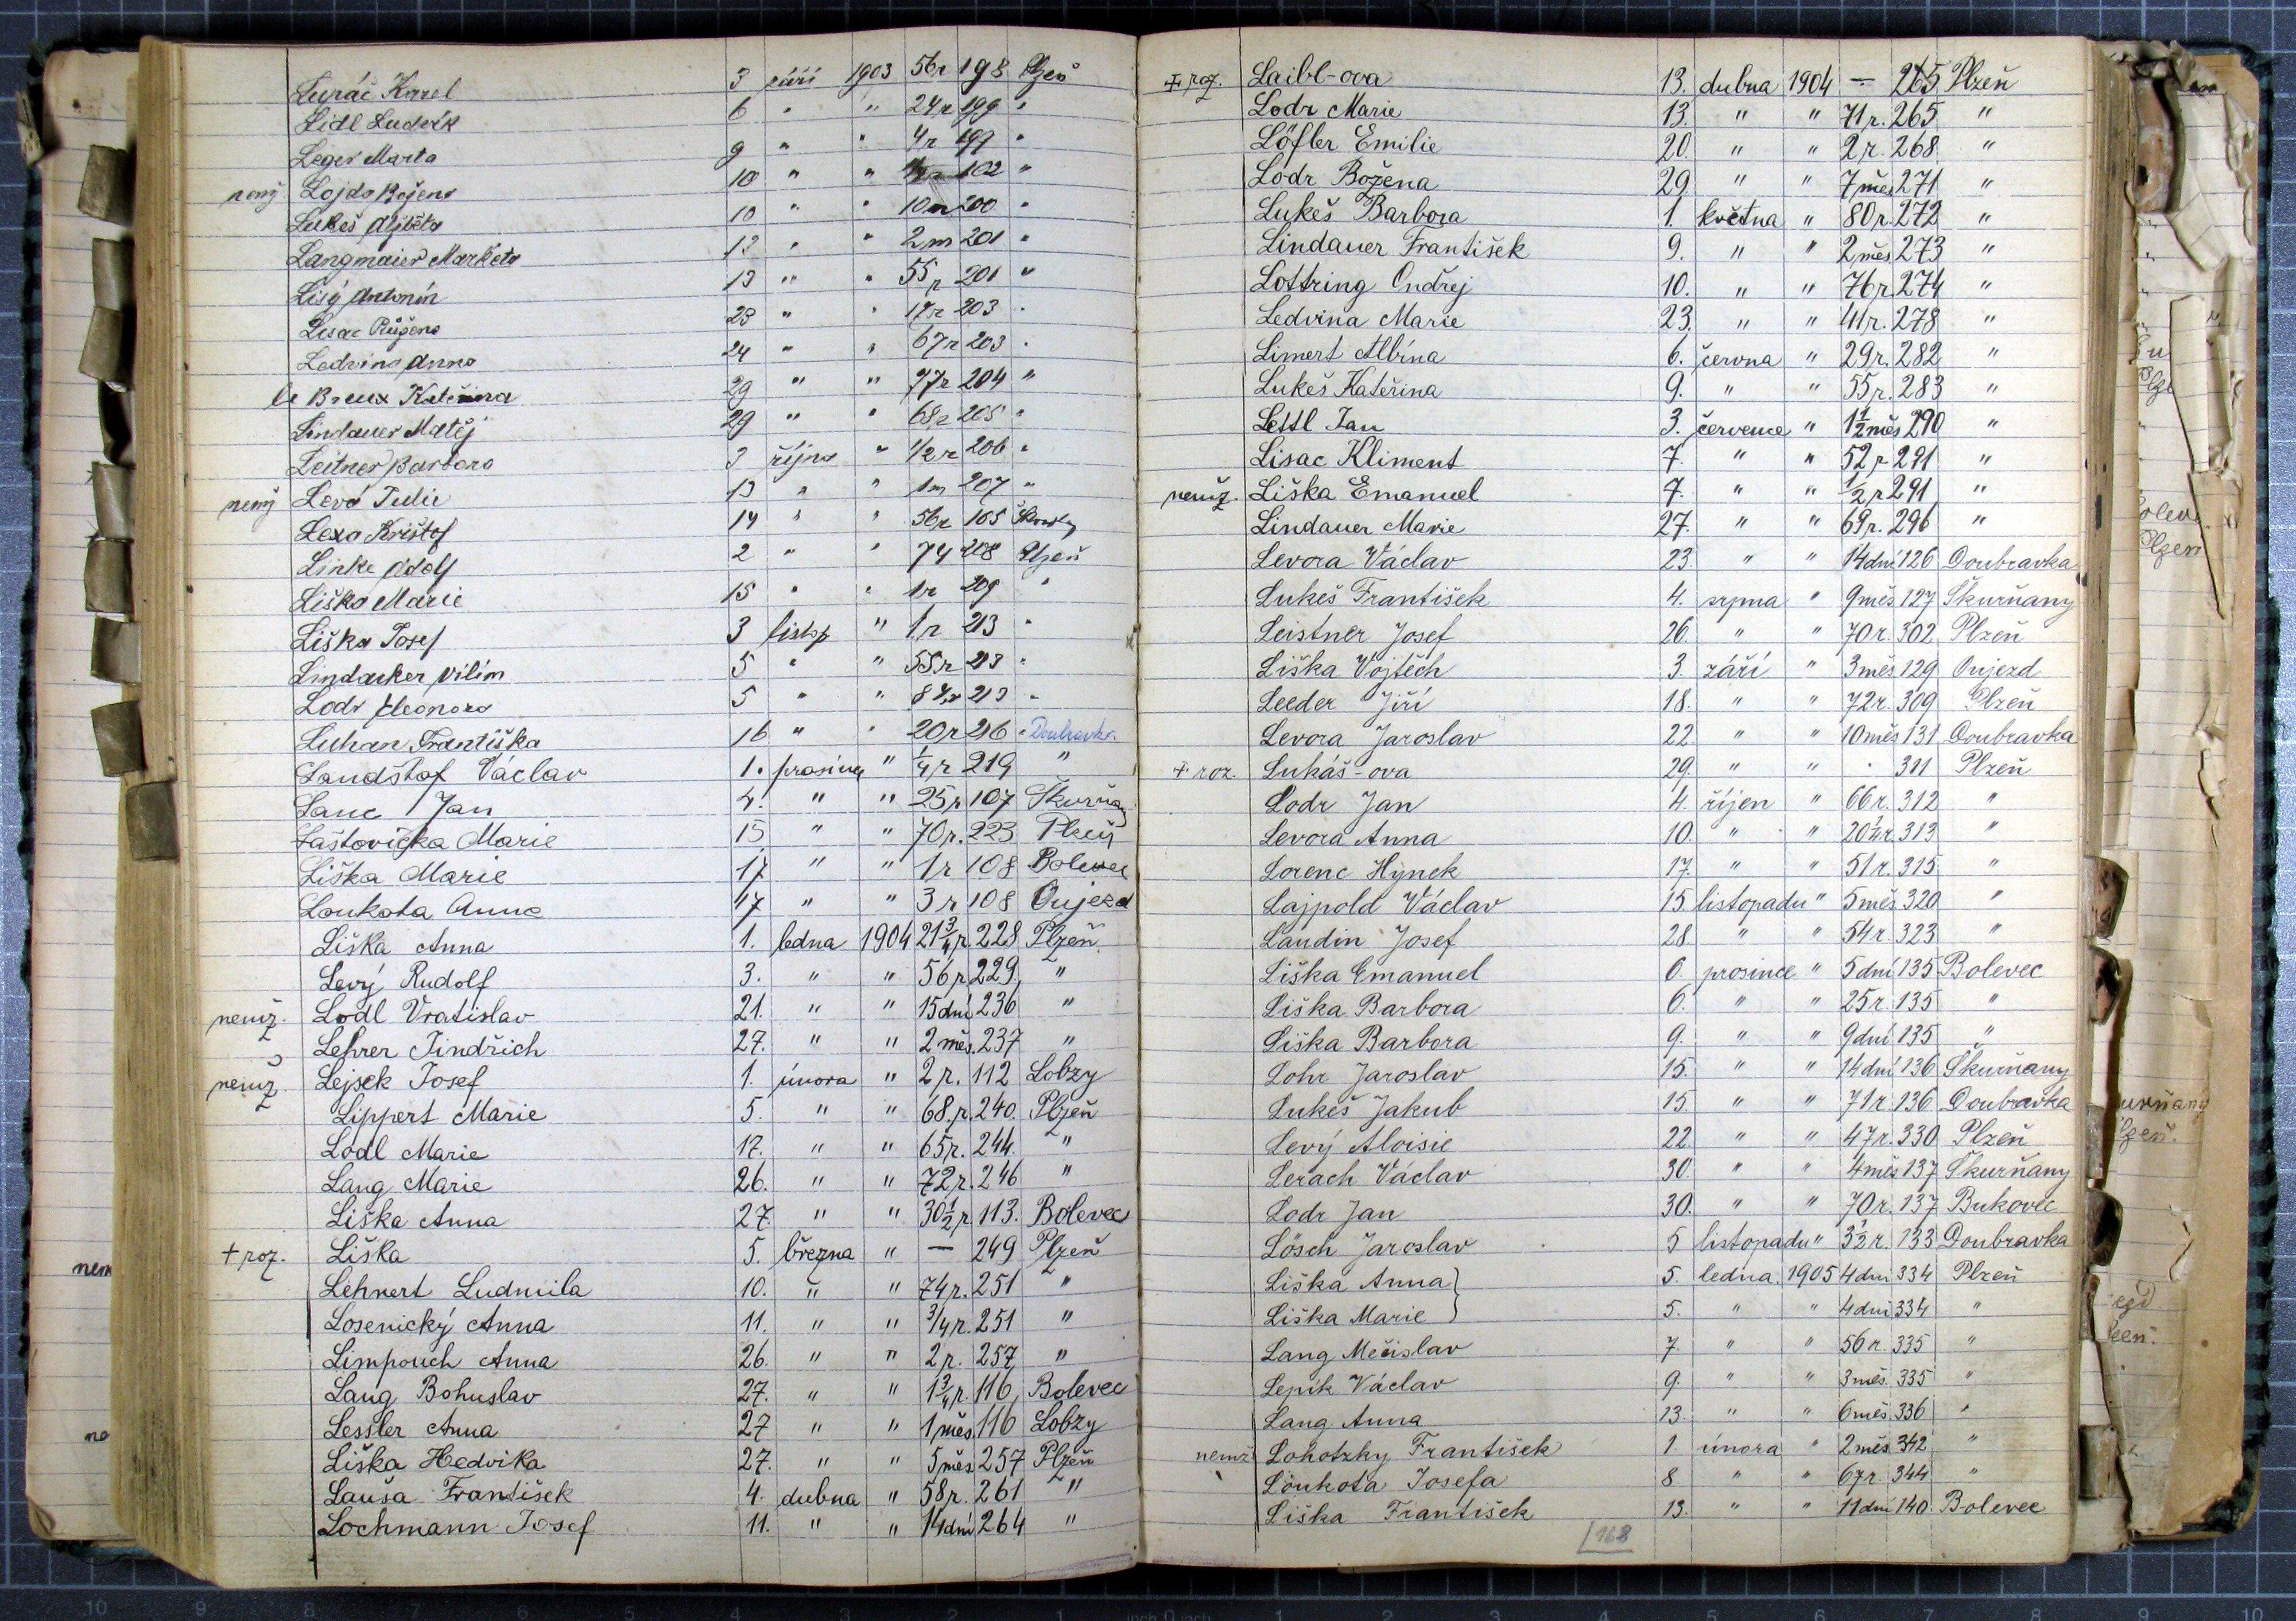 Luráč Karel 3 září 1903 56r 198 Plzeň
Lidl Ludvík 6 " " 24r 199 "
Leger Marta 9 " " 4r 199 "
nemž Lojda Božena 10 " " 102 "
Lukeš Alžběta 10 " " 10m 200 "
Langmaier Markéta 12 " " 2m 201 "
Lisý Antonín 13 " " 55r 201 "
Lisac Růžena 23 " " 17r 203 "
Ledvina Anna 24 " " 67r 203 "
le Breux Kateřina 29 " " 77r 204 "
Lindauer Matěj 29 " " 68r 205 "
Leitner Barbora 3 října " 1/2 r 206 "
nemž Levá Julie 13 " " 1m 207 "
Lexa Krištof 14 " " 56r 105
Linke Adolf 2 " " 74 208 Plzeň
Liška Marie 15 " " 1r 209 "
Liška Josef 3 listop " 1r 213 "
Lindauker Vilím 5 " " 55r 213 "
Lodr Eleonora 5 " " 213 "
Luhan Františka 16 " " 20r 216 " Doubravka
Landštof Václav 1. prosince " 1/4 r 219 "
Lanc Jan 4. " " 25r 107 Škurňany
Laštovička Marie 15 " " 70r. 223 Plzeň
Liška Marie 17 " " 1r 108 Bolevec
Loukota Anna 17 " " 3r 108 Oujezd
Liška Anna 1. ledna 1904 21 3/4 r. 228 Plzeň
Levý Rudolf 3. " " 56r 229 "
nemž. Lodl Vratislav 21. " " 15dní 236 "
Lehrer Jindřich 27. " " 2 měs. 237 "
nemž. Lejsek Josef 1. února " 2r. 112 Lobzy
Lippert Marie 5. " " 68.r. 240. Plzeň
Lodl Marie 17. " " 65r. 244. "
Lang Marie 26. " " 72r. 246 "
Liška Anna 27. " " 30 1/2 r. 113. Bolevec
+ roz. Liška 5. března " — 249 Plzeň
Lehnert Ludmila 10. " " 74r. 251 "
Losenický Anna 11. " " 3/4 r. 251 "
Limpouch Anna 26. " " 2r. 257 "
Lang Bohuslav 27. " " 1 3/4 r. 116 Bolevec
Lessler Anna 27 " " 1 měs. 116 Lobzy
Liška Hedvika 27. " " 5 měs 257 Plzeň
Lauša František 4. dubna " 58r. 261 "
Lochmann Josef 11. " " 14dní 264 "
+ roz. Laibl-ova 13. dubna 1904 — 265 Plzeň
Lodr Marie 13. " " 71r. 265 "
Löfler Emilie 20. " " 2r. 268 "
Lodr Božena 29 " " 7 měs 271 "
Lukeš Barbora 1. května " 80r. 272 "
Lindauer František 9. " " 2 měs 273 "
Lottring Ondřej 10. " " 76r. 274 "
Ledvina Marie 23. " " 41r. 278 "
Limert Albína 6. června " 29r. 282 "
Lukeš Kateřina 9. " " 55r. 283 "
Lettl Jan 3. července " 1 1/2 měs 290 "
Lisac Kliment 7. " " 52 r 291 "
nemž. Liška Emanuel 7. " " 1/2 r 291 "
Lindauer Marie 27. " " 69r. 296 "
Levora Václav 23. " " 14dní 126 Doubravka
Lukeš František 4. srpna " 9měs. 127 Škurňany
Leistner Josef 26. " " 70r. 302 Plzeň
Liška Vojtěch 3. září " 3měs 129 Oujezd
Leeder Jiří 18. " " 72r. 309 Plzeň
Levora Jaroslav 22. " " 10měs 131 Doubravka
+ roz. Lukáš-ova 29. " " · 311 Plzeň
Lodr Jan 4. říjen " 66r. 312 "
Levora Anna 10. " " 20 1/4 r. 313 "
Lorenc Hynek 17. " " 51r. 315 "
Lajpold Václav 15. listopadu " 5měs. 320 "
Landin Josef 28 " " 54r. 323 "
Liška Emanuel 6. prosince " 5dní 135 Bolevec
Liška Barbora 6. " " 25r. 135 "
Liška Barbora 9. " " 9dní 135 "
Lohr Jaroslav 15. " " 14dní 136 Škurňany
Lukeš Jakub 15. " " 71r. 136 Doubravka
Levý Aloisie 22. " " 47r. 330 Plzeň
Lerach Václav 30. " " 4měs 137 Škurňany
Lodr Jan 30. " " 70r. 137 Bukovec
Lösch Jaroslav 5 listopadu " 3 1/2 r. 133 Doubravka
Liška Anna } 5. ledna. 1905 4dní 334 Plzeň
Liška Marie } 5. " " 4dní 334 "
Lang Mečislav 7. " " 56r. 335 "
Lepík Václav 9. " " 3měs. 335 "
Lang Anna 13. " " 6měs 336 "
nemž Lohotzky František 1 února " 2měs 342 "
Loukota Josefa 8 " " 67r. 344 "
Liška František 13. " " 11dní 140. Bolevec
168